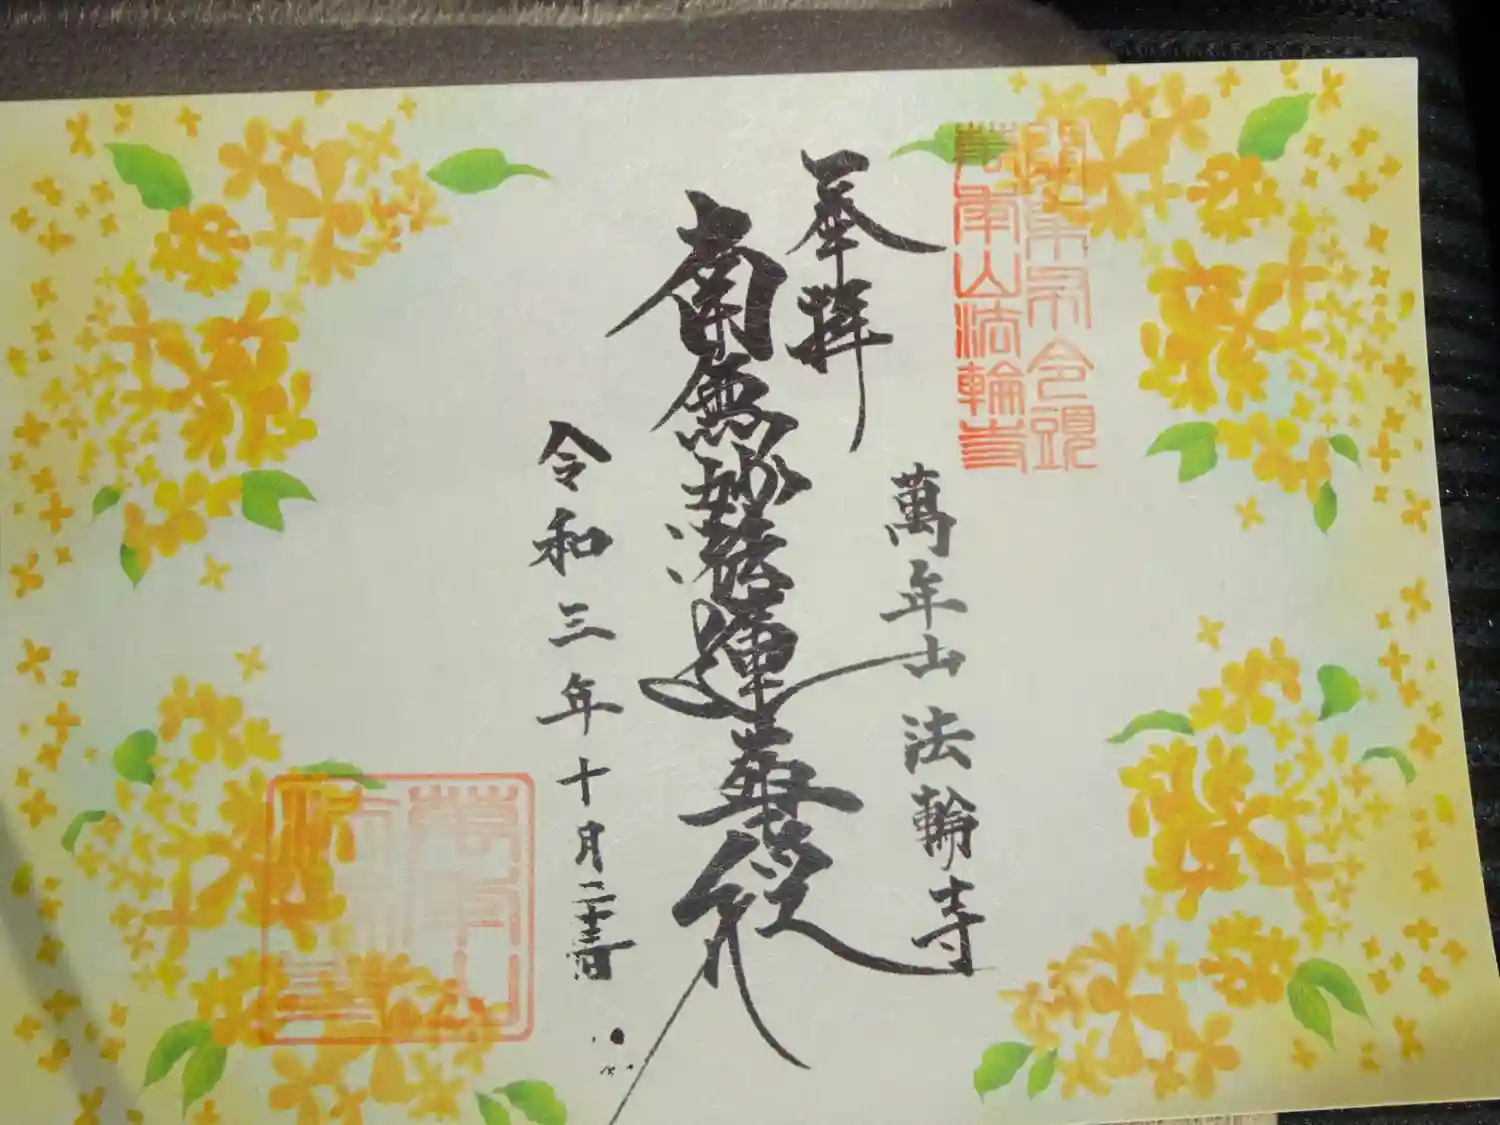 萬年山法輪寺
奉拝
萬年山 法輪寺
南無妙法蓮華経
令和三年十月二十三日
萬年山
法輪寺